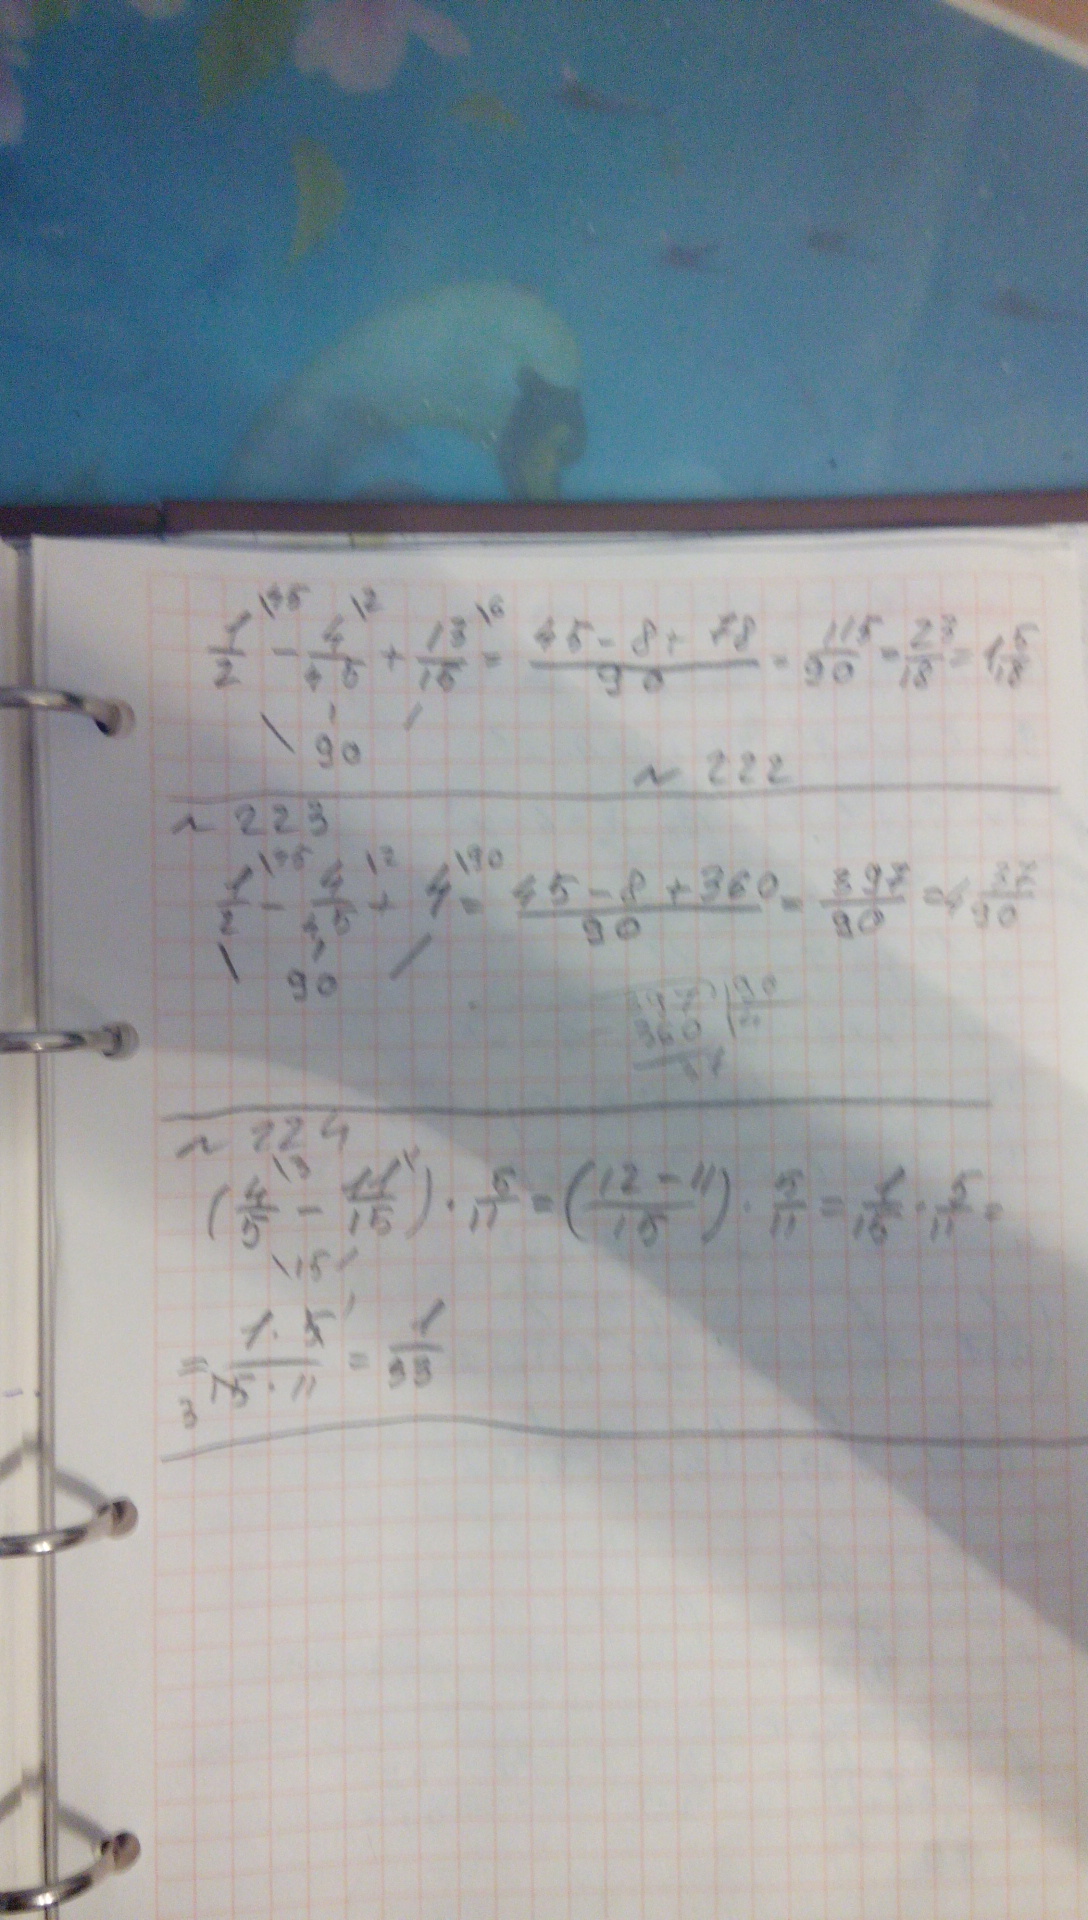 1/2 \45 - 4/45 \2 + 13/15 \6 = 45 - 8 + 78 / 90 = 115/90 = 23/18 = 1 5/18
\ 1 /
90
~ 222
~ 223
1/2 \45 - 4/45 \2 + 4 \90 = 45 - 8 + 360 / 90 = 397/90 = 4 37/90
\ 1 /
90
397 | 90
360
37
~ 224
(4/5 \3 - 11/15 \1) · 5/11 = (12 - 11 / 15) · 5/11 = 1/15 · 5/11 =
\15/
= 1 · 5 1 / 15 · 11 = 1/33
3